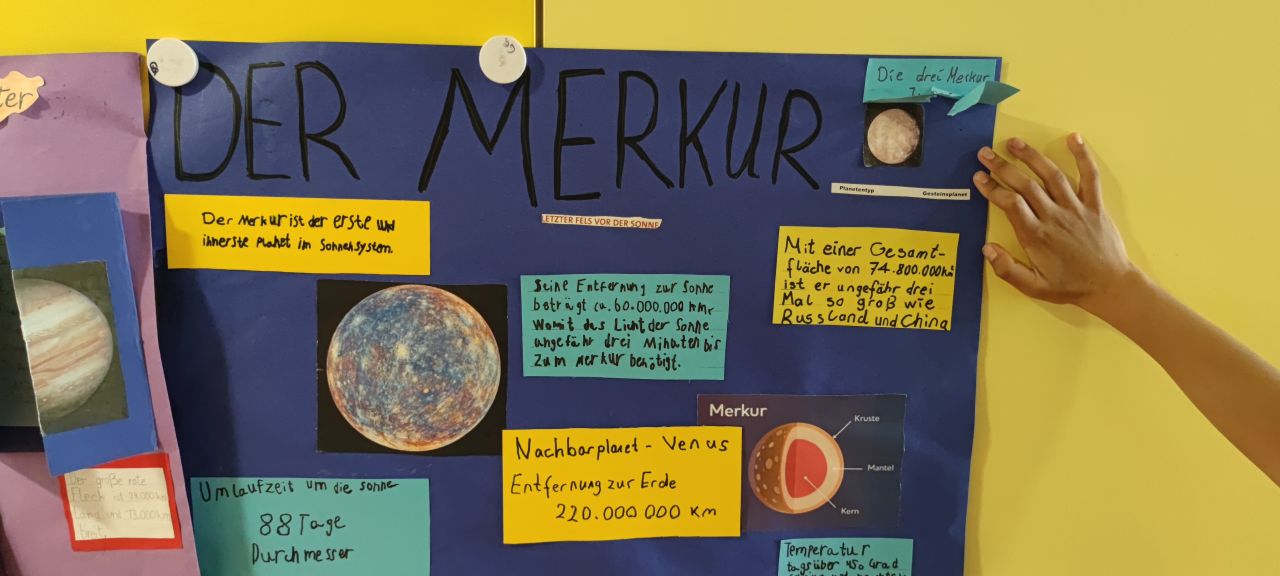 ter
DER MERKUR
Die drei Merkur
Planetentyp Gesteinsplanet
Der Merkur ist der erste und
innerste Planet im Sonnensystem.
LETZTER FELS VOR DER SONNE
Mit einer Gesamt-
fläche von 74.800.000km
ist er ungefähr drei
Mal so groß wie
Russland und China
Seine Entfernung zur Sonne
beträgt ca. 60.000.000 km.
Womit das Licht der Sonne
ungefähr drei Minuten bis
zum Merkur benötigt.
Merkur
Kruste
Mantel
Kern
Nachbarplanet - Venus
Entfernung zur Erde
220.000 000 km
Umlaufzeit um die sonne
88 Tage
Durchmesser
Der große rote
Fleck ist
lang und 13.000km
breit.
Temperatur
tagsüber 450 Grad